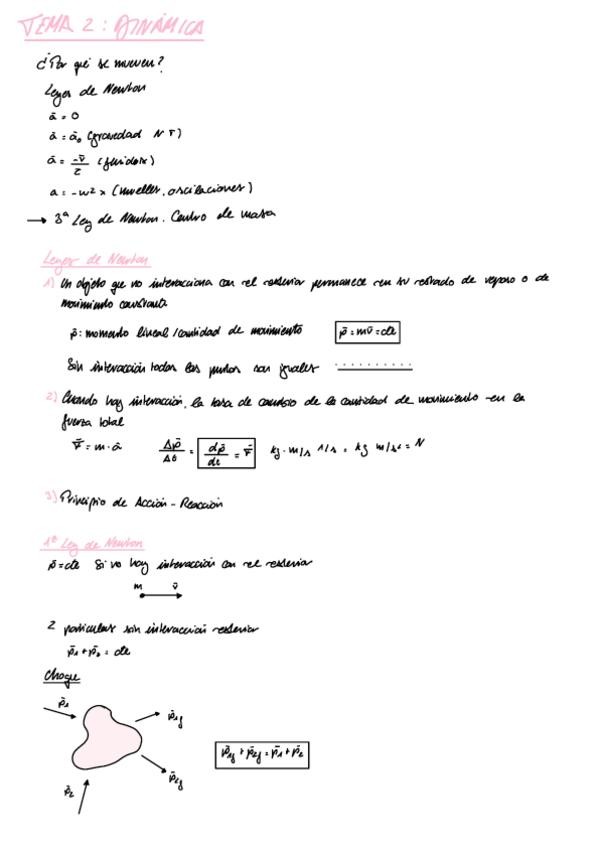 TEMA 2: DINÁMICA
¿Por qué se mueven?
Leyes de Newton
ā = 0
ā = ā₀ (gravedad N T)
ā = -v̄/τ (fluidos)
a = -ω² x (muelles, oscilaciones)
→ 3ª Ley de Newton. Centro de masa
Leyes de Newton
1) Un objeto que no interacciona con el exterior permanece en su estado de reposo o de
movimiento constante
p̄: momento lineal/cantidad de movimiento p̄ = mv̄ = cte
Sin interacción todos los puntos son iguales
2) Cuando hay interacción, la tasa de cambio de la cantidad de movimiento en la
fuerza total
F̄ = m·ā Δp̄/Δt = dp̄/dt = F̄ kg·m/s 1/s = kg m/s² = N
3) Principio de Acción - Reacción
1ª Ley de Newton
p̄ = cte Si no hay interacción con el exterior
m v̄
2 partículas sin interacción exterior
p̄₁ + p̄₂ = cte
Choque
p̄₁ p̄₁f
p̄₁f + p̄₂f = p̄₁ + p̄₂
p̄₂ p̄₂f